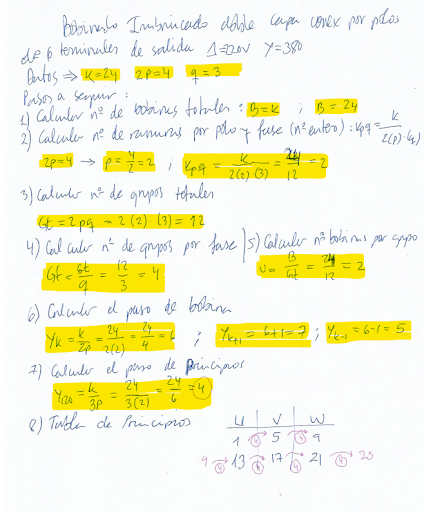 Bobinado Imbricado doble capa conex por polos
de 6 terminales de salida Δ=220v Y=380
Datos ⇒ K=24 2p=4 q=3
Pasos a seguir:
1) Calcular nº de bobinas totales: B=K ; B=24
2) Calcular nº de ranuras por polo y fase (nº entero): Kpq = K / 2(p)·(q)
2p=4 → p=4/2=2 ; Kpq = K / 2(2)(3) = 24/12 = 2
3) Calcular nº de grupos totales
Gt=2pq = 2(2)(3)=12
4) Calcular nº de grupos por fase
Gt= Gt/q = 12/3 = 4
5) Calcular nº bobinas por grupo
U= B/Gt = 24/12 = 2
6) Calcular el paso de bobina
YK = K/2p = 24/2(2) = 24/4 = 6 ; YK+1 = 6+1=7 ; YK-1 = 6-1=5
7) Calcular el paso de Principios
Y120 = K/3p = 24/3(2) = 24/6 = 4
8) Tabla de Principios
U V W
1 4 5 4 9
9 4 13 4 17 4 21 4 25